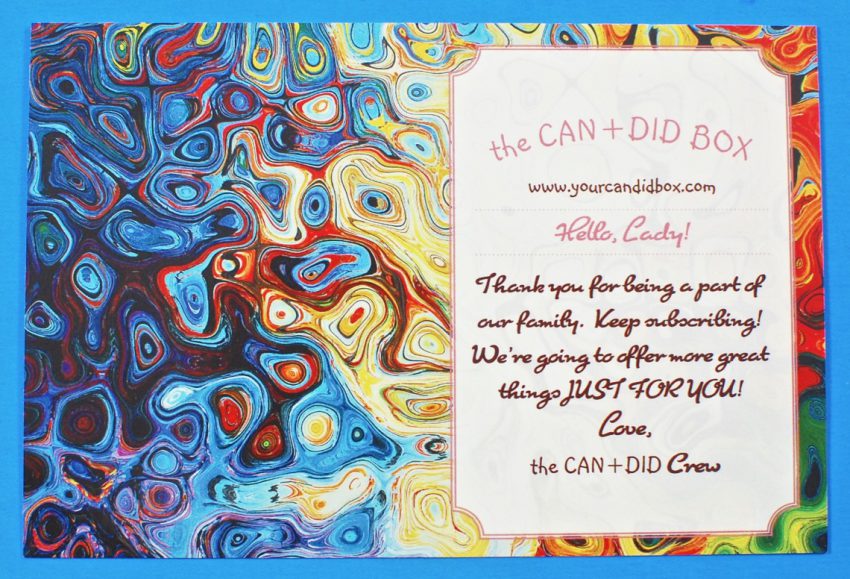 the CAN+DID BOX
www.yourcandidbox.com
Hello, Lady!
Thank you for being a part of
our family. Keep subscribing!
We're going to offer more great
things JUST FOR YOU!
Love,
the CAN+DID Crew